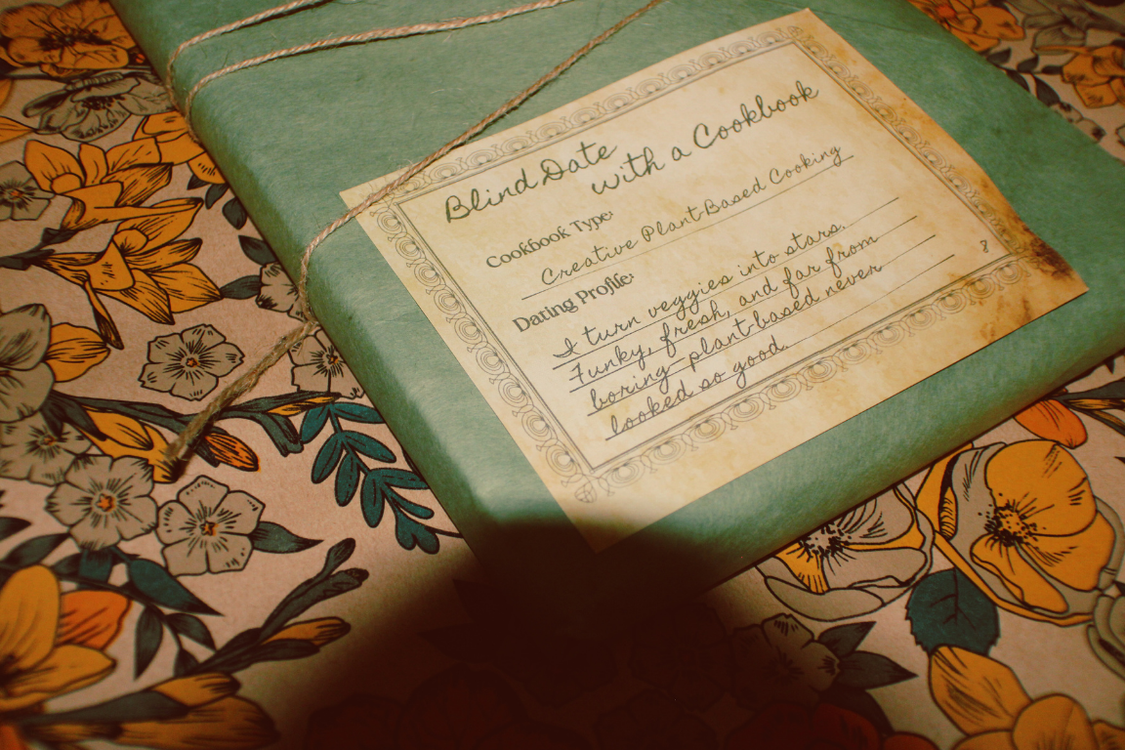 Blind Date
with a Cookbook
Cookbook Type:
Creative Plant-Based Cooking
Dating Profile:
I turn veggies into stars.
Funky, fresh, and far from
boring plant-based never
looked so good.